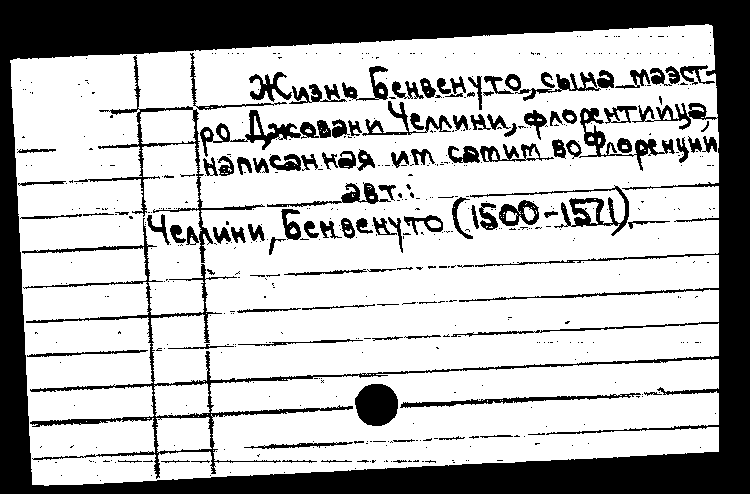 Жизнь Бенвенуто, сына маэст-
ро Джовани Челлини, флорентийца,
написанная им самим во Флоренции
авт.:
Челлини, Бенвенуто (1500-1571).